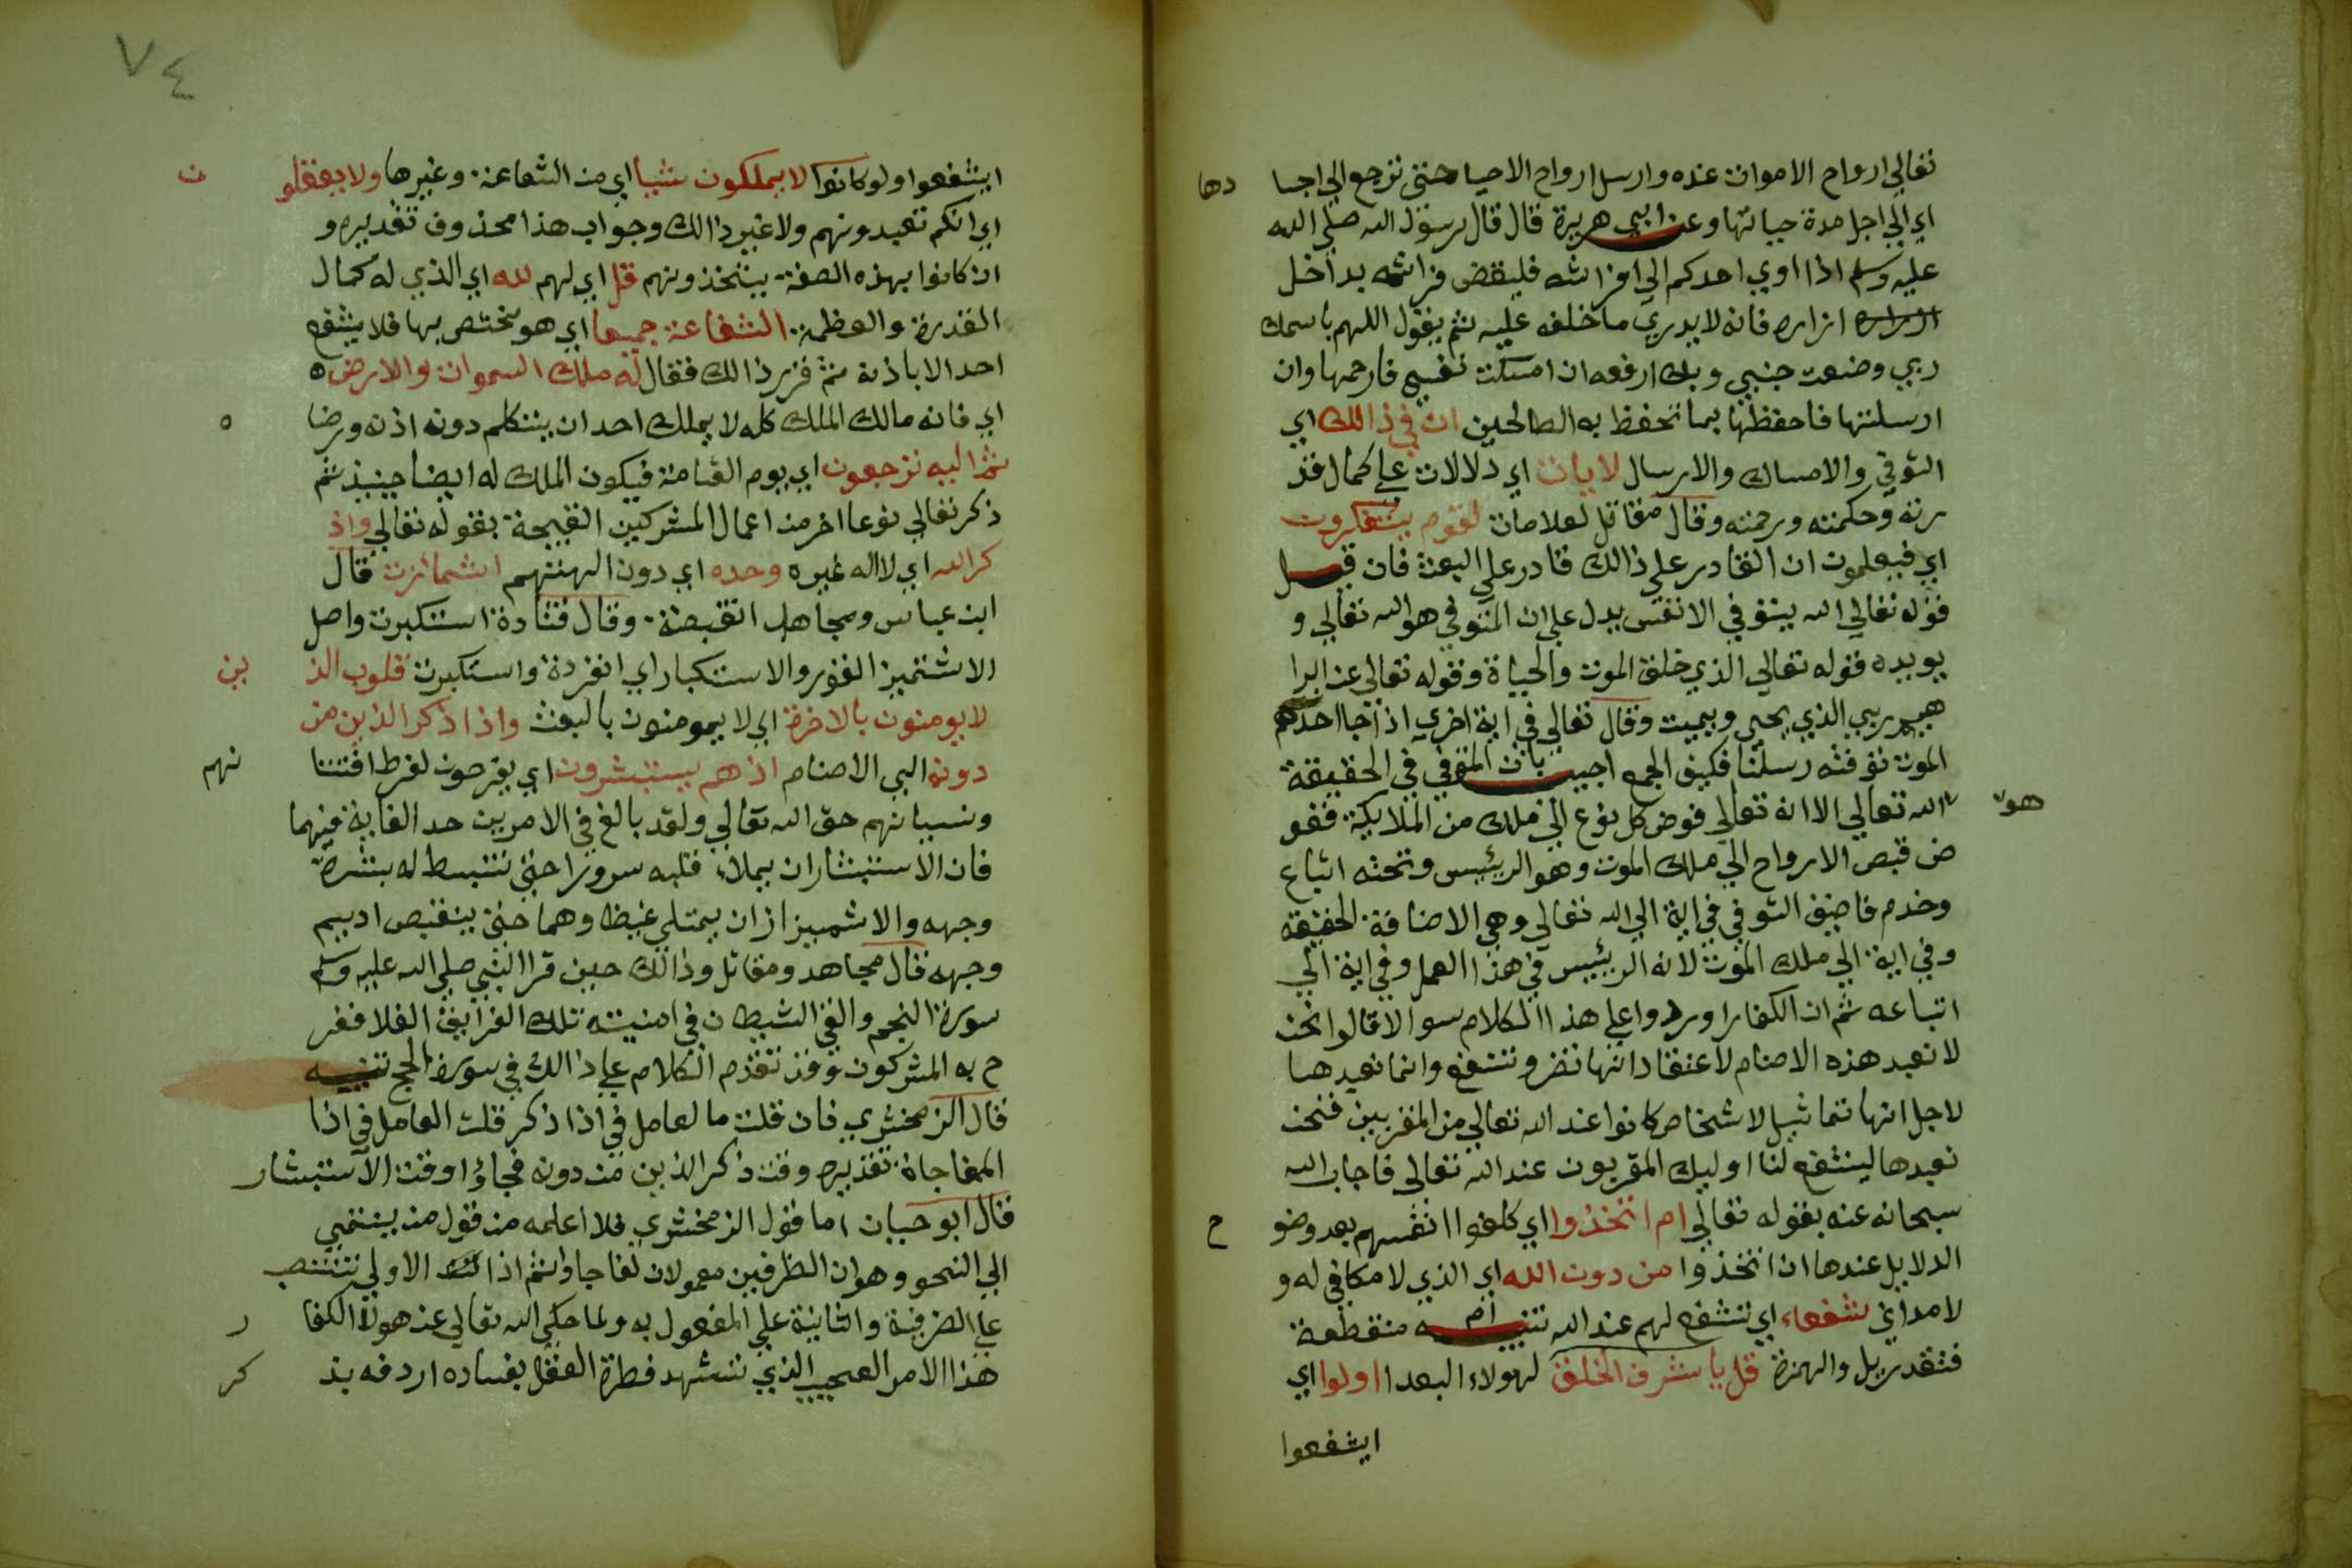 تعالي ارواح الاموات عنده وارسل ارواح الاحيا حتي ترجع الي اجسا دها
اي الي اجل مدة حياتها وعن ابي هريرة قال قال رسول الله صلي الله
عليه وسلم اذا اوي احدكم الي افراشه فلينفض فراشه بداخل
ازاره فانه لا يدري ما خلفه عليه ثم يقول اللهم باسمك
ربي وضعت جنبي وبك ارفعه ان امسكت نفسي فارحمها وان
ارسلتها فاحفظها بما تحفظ به الصالحين ان في ذالك اي
التوفي والامساك والارسال لايات اي دلالات علي كمال قد
رته وحكمته ورحمته وقال مقاتل لعلامات لقوم يتفكرون
اي فيعلمون ان القادر علي ذالك قادر علي البعث فان قيل
قوله تعالي الله يتوفي الانفس يدل علي ان المتوفي هو الله تعالي و
يويده قوله تعالي الذي خلق الموت والحياة وقوله تعالي عن ابرا
هيم ربي الذي يحيي ويميت وقال تعالي في اية اخري اذا جا احدكم
الموت توفته رسلنا فكيف الجمع اجيب بان المتوفي في الحقيقة
هو الله تعالي الا انه تعالي فوض كل نوع الي ملك من الملايكة ففو
ض قبض الارواح الي ملك الموت وهو الرئيس وتحته اتباع
وخدم فاضيف التوفي في اية الي الله تعالي وهي الاضافة الحقيقة
وفي اية الي ملك الموت لانه الرئيس في هذا العمل وفي اية الي
اتباعه ثم ان الكفار اوردوا علي هذا الكلام سوالا قالوا نحن
لا نعبد هذه الاصنام لاعتقاد انها تضر وتنفع وانما نعبدها
لاجل انها تماثيل لاشخاص كانوا عند الله تعالي من المقربين فنحن
نعبدها ليشفع لنا اوليك المقربون عند الله تعالي فاجاب الله
سبحانه عنه بقوله تعالي ام اتخذوا اي كلفوا انفسهم بعد وضو ح
الدلايل عندها ان اتخذوا من دون الله اي الذي لا مكافي له و
لا مداني شفعاء اي تشفع لهم عند الله تنبيه ام منقطعة
فتقدر ببل والهمزة قل يا شرف الخلق لهولاء البعدا اولوا اي
ايشفعوا
٧٤
ايشفعوا ولو كانوا لا يملكون شيا اي من الشفاعة وغيرها ولا يعقلو ن
اي انكم تعبدونهم ولا غير ذالك وجواب هذا محذوف تقديره و
ان كانوا بهذه الصفة يتخذونهم قل اي لهم لله اي الذي له كمال
القدرة والعظمة الشفاعة جميعا اي هو مختص بها فلا يشفع
احد الا باذنه ثم قرر ذالك فقال له ملك السموات والارض
اي فانه مالك الملك كله لا يملك احد ان يتكلم دون اذنه ورضا ه
ثم اليه ترجعون اي يوم القيامة فيكون الملك له ايضا حينيذ ثم
ذكر تعالي نوعا اخر من اعمال المشركين القبيحة بقوله تعالي واذ
كر الله اي لا اله غيره وحده اي دون الهتهم اشمازت قال
ابن عباس ومجاهد انقبضة وقال قتادة استكبرت واصل
الاشتميز النفور والاستكبار اي انفردة واستكبرت قلوب الذ ين
لا يومنون بالاخرة اي لا يومنون بالبعث واذا ذكر الذين من
دونه الي الاصنام اذ هم يستبشرون اي يفرحون لفرط افتتنا نهم
ونسيانهم حق الله تعالي ولقد بالغ في الامرين حد الغاية فيهما
فان الاستبشار ان يملاء قلبه سرورا حتي تنبسط له بشرة
وجهه والاشميزاز ان يمتلي غيظا وهما حتي ينقبض اديم
وجهه قال مجاهد ومقاتل وذالك حين قرا النبي صلي الله عليه وسلم
سورة النجم والقي الشيطان في امنيته تلك الغرانيق العلا ففر
ح به المشركون وقد تقدم الكلام علي ذالك في سورة الحج تنبيه
قال الزمخشري فان قلت ما لعامل في اذا ذكر قلت العامل في اذا
المفاجاة تقديره وقت ذكر الذين من دونه فجاؤا وقت الاستبشار
قال ابو حيان اما قول الزمخشري فلا اعلمه من قول من ينتمي
الي النحو وهو ان الظرفين معمولان لفاجاوا ثم اذا الاولي تنتصب
علي الظرفية والثانية علي المفعول به ولما حكي الله تعالي عن هولا الكفا ر
هذا الامر العجيب الذي تشهد فطرة العقل بفساده اردفه بذ كر